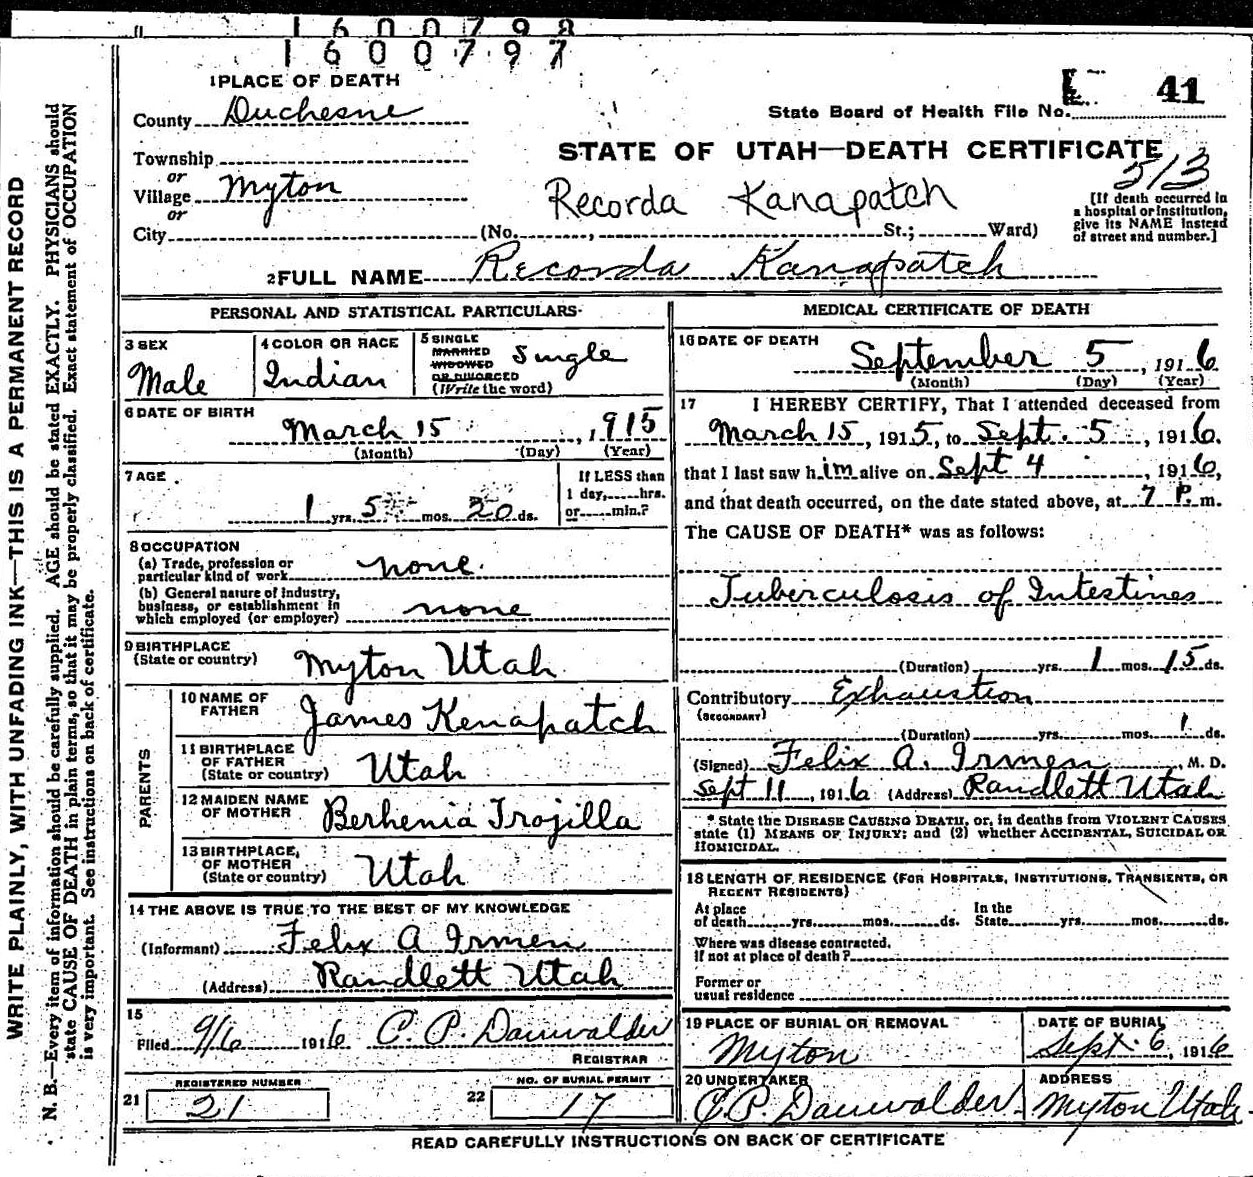 1600798
1600797
1 PLACE OF DEATH
County Duchesne
State Board of Health File No. 41
Township
or
Village Myton
or
City (No. , St.; Ward)
STATE OF UTAH—DEATH CERTIFICATE
513
Recorda Kanapatch
[If death occurred in
a hospital or institution,
give its NAME instead
of street and number.]
2 FULL NAME Recorda Kanapatch
PERSONAL AND STATISTICAL PARTICULARS
3 SEX
Male
4 COLOR OR RACE
Indian
5 SINGLE
MARRIED
WIDOWED
OR DIVORCED
(Write the word)
Single
6 DATE OF BIRTH
March 15, 1915
(Month) (Day) (Year)
7 AGE
1 yrs. 5 mos. 20 ds.
If LESS than
1 day, hrs.
or min.?
8 OCCUPATION
(a) Trade, profession or
particular kind of work none.
(b) General nature of Industry,
business, or establishment in
which employed (or employer) none
9 BIRTHPLACE
(State or country) Myton Utah
PARENTS
10 NAME OF
FATHER James Kenapatch
11 BIRTHPLACE
OF FATHER
(State or country) Utah
12 MAIDEN NAME
OF MOTHER Berhenia Trojilla
13 BIRTHPLACE,
OF MOTHER
(State or country) Utah
14 THE ABOVE IS TRUE TO THE BEST OF MY KNOWLEDGE
(Informant) Felix A Irmen
(Address) Randlett Utah
15
Filed 9/6 1916 C. P. Danwalder
REGISTRAR
21 REGISTERED NUMBER
21
22 NO. OF BURIAL PERMIT
17
MEDICAL CERTIFICATE OF DEATH
16 DATE OF DEATH
September 5, 1916
(Month) (Day) (Year)
17 I HEREBY CERTIFY, That I attended deceased from
March 15, 1915, to Sept. 5, 1916.
that I last saw him alive on Sept 4, 1916,
and that death occurred, on the date stated above, at 7 P. m.
The CAUSE OF DEATH* was as follows:
Tuberculosis of Intestines
(Duration) yrs. 1 mos. 15 ds.
Contributory Exhaustion
(SECONDARY)
(Duration) yrs. mos. 1 ds.
(Signed) Felix A. Irmen, M. D.
Sept 11, 1916 (Address) Randlett Utah
* State the DISEASE CAUSING DEATH, or, in deaths from VIOLENT CAUSES
state (1) MEANS OF INJURY; and (2) whether ACCIDENTAL, SUICIDAL OR
HOMICIDAL.
18 LENGTH OF RESIDENCE (FOR HOSPITALS, INSTITUTIONS, TRANSIENTS, OR
RECENT RESIDENTS)
At place
of death yrs. mos. ds.
In the
State yrs. mos. ds.
Where was disease contracted.
If not at place of death?
Former or
usual residence
19 PLACE OF BURIAL OR REMOVAL
Myton
DATE OF BURIAL
Sept. 6, 1916
20 UNDERTAKER
C. P. Danwalder
ADDRESS
Myton Utah.
READ CAREFULLY INSTRUCTIONS ON BACK OF CERTIFICATE
WRITE PLAINLY, WITH UNFADING INK—THIS IS A PERMANENT RECORD
N. B.—Every item of information should be carefully supplied. AGE should be stated EXACTLY. PHYSICIANS should
state CAUSE OF DEATH in plain terms, so that it may be properly classified. Exact statement of OCCUPATION
is very important. See instructions on back of certificate.